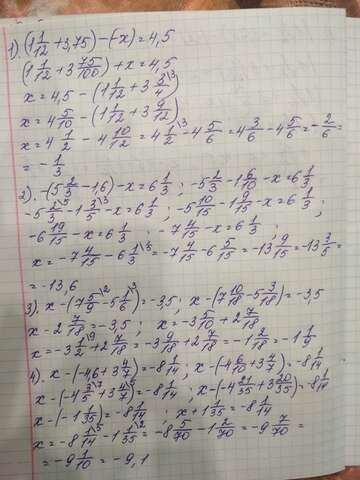 1). (1 1/12 + 3,75) - (-x) = 4,5
(1 1/12 + 3 75/100) + x = 4,5
x = 4,5 - (1 1/12 + 3 3/4 \3)
x = 4 5/10 - (1 1/12 + 3 9/12)
x = 4 1/2 - 4 10/12 = 4 1/2 \3 - 4 5/6 = 4 3/6 - 4 5/6 = - 2/6 =
= - 1/3
2). -(5 2/3 - 1,6) - x = 6 1/3 ; -5 2/3 - 1 6/10 - x = 6 1/3
-5 2/3 \5 - 1 3/5 \3 - x = 6 1/3 ; -5 10/15 - 1 9/15 - x = 6 1/3 ;
-6 19/15 - x = 6 1/3 ; -7 4/15 - x = 6 1/3 ;
x = -7 4/15 - 6 1/3 \5 = -7 4/15 - 6 5/15 = -13 9/15 = -13 3/5 =
= -13,6
3). x - (7 5/9 \2 - 5 1/6 \3) = -3,5 ; x - (7 10/18 - 5 3/18) = -3,5
x - 2 7/18 = -3,5 ; x = -3 5/10 + 2 7/18
x = -3 1/2 \9 + 2 7/18 = -3 9/18 + 2 7/18 = -1 2/18 = -1 1/9
4). x - (-4,6 + 3 4/7) = -8 1/14 ; x - (-4 6/10 + 3 4/7) = -8 1/14
x - (-4 3/5 \7 + 3 4/7 \5) = -8 1/14 ; x - (-4 21/35 + 3 20/35) = -8 1/14
x - (-1 1/35) = -8 1/14 ; x + 1 1/35 = -8 1/14
x = -8 1/14 \5 - 1 1/35 \2 = -8 5/70 - 1 2/70 = -9 7/70 =
= -9 1/10 = -9,1